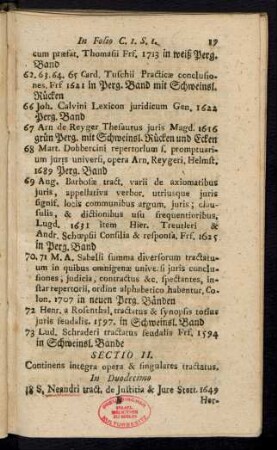 In Folio C. 1. S. 1. 19
cum præfat. Thomasii Frf. 1713 in weiß Perg.
Band
62. 63. 64. 65 Card. Tuschii Practicæ conclusio-
nes. Frf 1621 in Perg. Band mit Schweinsl.
Rücken
66 Joh. Calvini Lexicon juridicum Gen. 1622
Perg. Band
67 Arn de Reyger Thesaurus juris Magd. 1616
grün Perg. mit Schweinsl. Rücken und Ecken
68 Mart. Dobbercini repertorium s. promptuari-
um juris universi, opera Arn, Reygeri, Helmst,
1689 Perg. Band
69 Aug. Barbosæ tract, varii de axiomatibus
juris, appellativa verbor, utriusque juris
signif, locis communibus argum, juris; clau-
sulis, & dictionibus usu frequentioribus,
Lugd. 1631 item Hier. Treutleri &
Andr. Schœpsii Consilia & responsa, Frf, 1625
in Perg. Band
70. 71 M. A. Sabelli summa diversorum tractatu-
um in quibus omnigenæ universi juris conclu-
siones, judicia, contractus &c, spectantes, in-
star repertorii, ordine alphabetico habentur, Co-
lon, 1707 in neuen Perg. Bänden
72 Henr, a Rosenthal, tractatus & synopsis totius
juris feudalis, 1597, in Schweinsl. Band
73 Lud, Schraderi tractatus feudalis Frf, 1594
in Schweinsl. Bande
SECTIO II.
Continens integra opera & singulares tractatus.
In Duodecimo
S, Neandri tract, de Justitia & Jure Stett. 1649
Her-